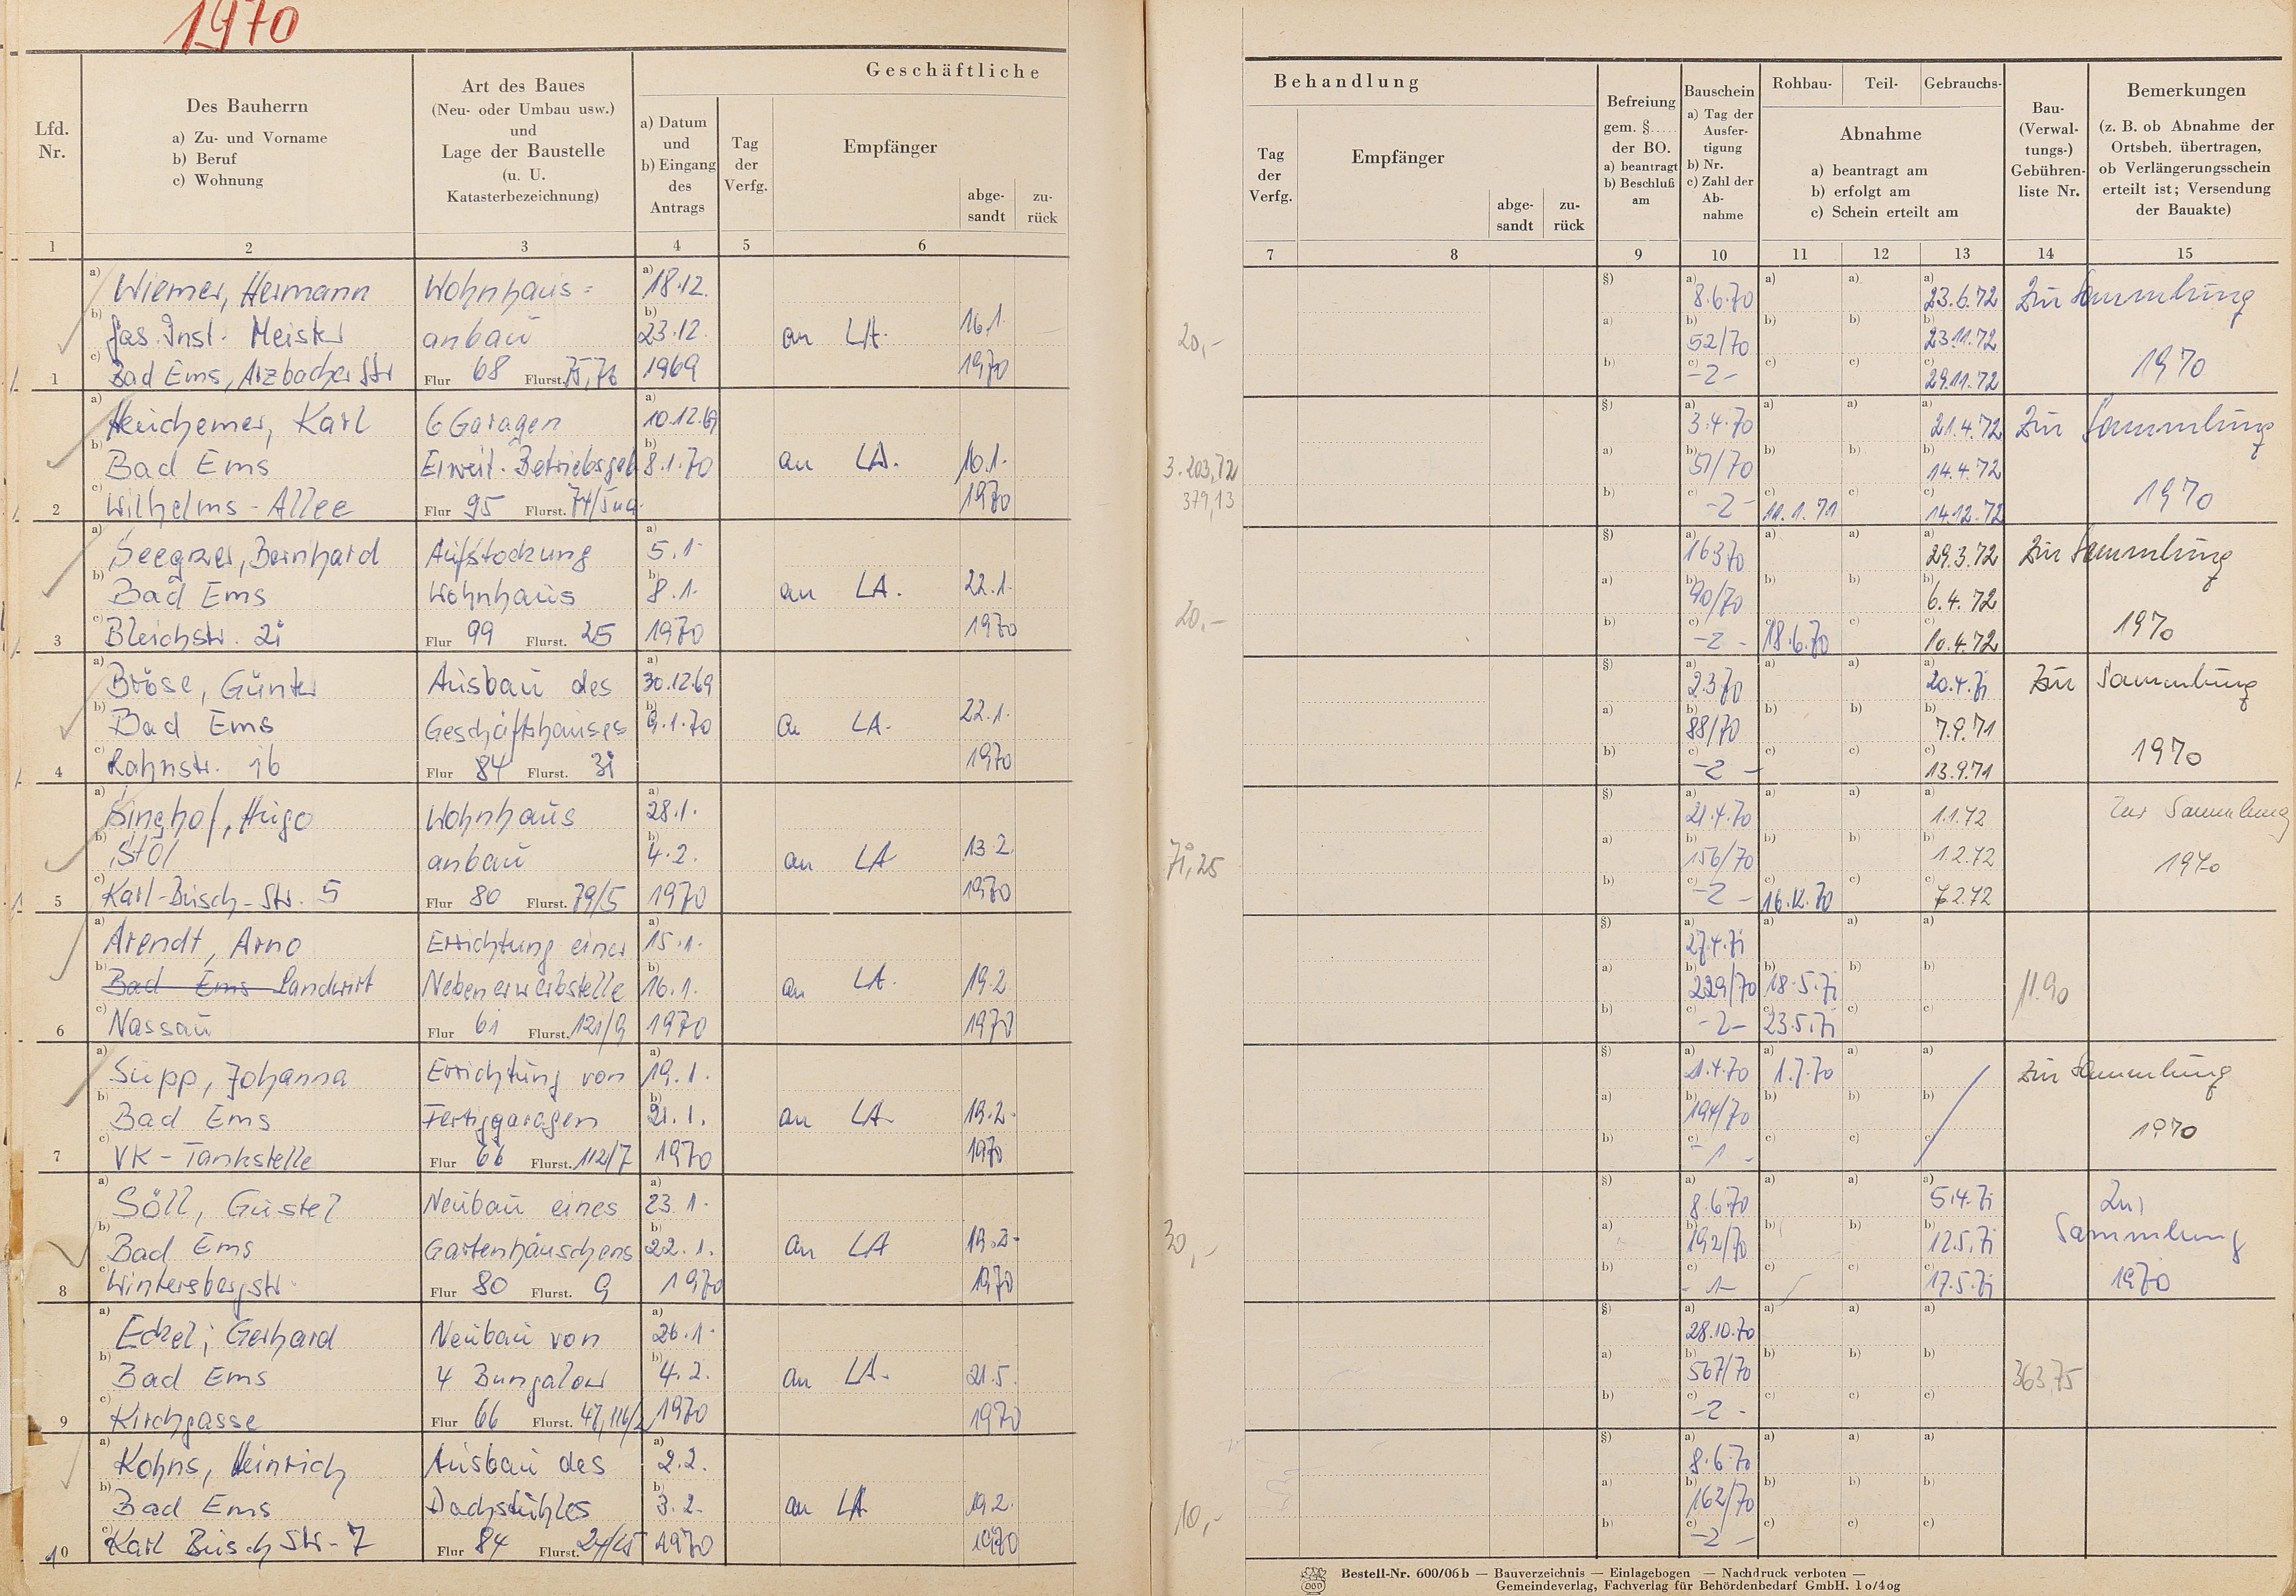 1970
Geschäftliche
Lfd. Nr.
Des Bauherrn
a) Zu- und Vorname
b) Beruf
c) Wohnung
Art des Baues
(Neu- oder Umbau usw.)
und
Lage der Baustelle
(u. U.
Katasterbezeichnung)
a) Datum
und
b) Eingang
des
Antrags
Tag
der
Verfg.
Empfänger
abge-
sandt
zu-
rück
1 2 3 4 5 6
a) Wiemer, Hermann Wohnhaus= a) 18.12.
b) Gas. Inst. Meister anbau b) 23.12. an LA. 16.1.
1 c) Bad Ems, Arzbacher Str Flur 68 Flurst. 75,76 1969 1970
a) Heuchemer, Karl 6 Garagen a) 10.12.69
b) Bad Ems Erweit. Betriebsgeb b) 8.1.70 an LA. 16.1.
2 c) Wilhelms-Allee Flur 95 Flurst. 74/5ua. 1970
a) Bernhard Aufstockung a) 5.1.
b) Bad Ems Wohnhaus b) 8.1. an LA. 22.1.
3 c) Bleichstr. 21 Flur 99 Flurst. 25 1970 1970
a) Bröse, Günter Ausbau des a) 30.12.69
b) Bad Ems Geschäftshauses b) 9.1.70 an LA. 22.1.
4 c) 16 Flur 84 Flurst. 31 1970
a) Hugo Wohnhaus a) 28.1.
b) anbau b) 4.2. an LA 13.2.
5 c) Karl-Busch-Str. 5 Flur 80 Flurst. 79/5 1970 1970
a) Arendt, Arno Errichtung einer a) 15.1.
b) Bad Ems Landwirt Nebenerwerbstelle b) 16.1. an LA. 19.2.
6 c) Nassau Flur 61 Flurst. 121/9 1970 1970
a) Supp, Johanna Errichtung von a) 19.1.
b) Bad Ems Fertiggaragen b) 21.1. an LA. 19.2.
7 c) VK-Tankstelle Flur 66 Flurst. 112/7 1970 1970
a) Söll, Gustel Neubau eines a) 23.1.
b) Bad Ems Gartenhäuschens b) 22.1. an LA 19.2.
8 c) Wintersbergstr. Flur 80 Flurst. 9 1970 1970
a) Eckel, Gerhard Neubau von a) 26.1.
b) Bad Ems 4 Bungalow b) 4.2. an LA. 21.5.
9 c) Kirchgasse Flur 66 Flurst. 47,116/2 1970 1970
a) Kohns, Heinrich Ausbau des a) 2.2.
b) Bad Ems Dachstuhles b) 3.2. an LA 19.2.
10 c) Karl Busch Str. 7 Flur 84 Flurst. 1970 1970
20,-
3.203,72
379,13
20,-
71,25
30,-
10,-
Behandlung
Tag
der
Verfg.
Empfänger
abge-
sandt
zu-
rück
Befreiung
gem. §.....
der BO.
a) beantragt
b) Beschluß
am
Bauschein
a) Tag der
Ausfer-
tigung
b) Nr.
c) Zahl der
Ab-
nahme
Rohbau- Teil- Gebrauchs-
Abnahme
a) beantragt am
b) erfolgt am
c) Schein erteilt am
Bau-
(Verwal-
tungs-)
Gebühren-
liste Nr.
Bemerkungen
(z. B. ob Abnahme der
Ortsbeh. übertragen,
ob Verlängerungsschein
erteilt ist; Versendung
der Bauakte)
7 8 9 10 11 12 13 14 15
§) a) 8.6.70 a) a) a) 23.6.72 Zur Sammlung
a) b) 52/70 b) b) b) 23.11.72
b) c) -2- c) c) c) 29.11.72 1970
§) a) 3.4.70 a) a) a) 21.4.72 Zur Sammlung
a) b) 51/70 b) b) b) 14.4.72
b) c) -2- c) 11.1.71 c) c) 14.12.72 1970
§) a) 16.3.70 a) a) a) 29.3.72 Zur Sammlung
a) b) 90/70 b) b) b) 6.4.72
b) c) -2- c) 18.6.70 c) c) 10.4.72 1970
§) a) 2.3.70 a) a) a) 20.4.71 Zur Sammlung
a) b) 88/70 b) b) b) 7.9.71
b) c) -2- c) c) c) 13.9.71 1970
§) a) 21.4.70 a) a) a) 1.1.72 Zur Sammlung
a) b) 156/70 b) b) b) 1.2.72 1970
b) c) -2- c) 16.12.70 c) c) 7.2.72
§) a) 27.4.71 a) a) a)
a) b) 229/70 b) 18.5.71 b) b) 11.90
b) c) -2- c) 23.5.71 c) c)
§) a) 21.4.70 a) 1.7.70 a) a) Zur Sammlung
a) b) 194/70 b) b) b)
b) c) -1- c) c) c) 1970
§) a) 8.6.70 a) a) a) 5.4.71 Zur
a) b) 192/70 b) b) b) 12.5.71 Sammlung
b) c) -1- c) c) c) 17.5.71 1970
§) a) 28.10.70 a) a) a)
a) b) 567/70 b) b) b) 363,75
b) c) -2- c) c) c)
§) a) 8.6.70 a) a) a)
a) b) 162/70 b) b) b)
b) c) -2- c) c) c)
Bestell-Nr. 600/06 b — Bauverzeichnis — Einlagebogen — Nachdruck verboten —
Gemeindeverlag, Fachverlag für Behördenbedarf GmbH. 10/4og